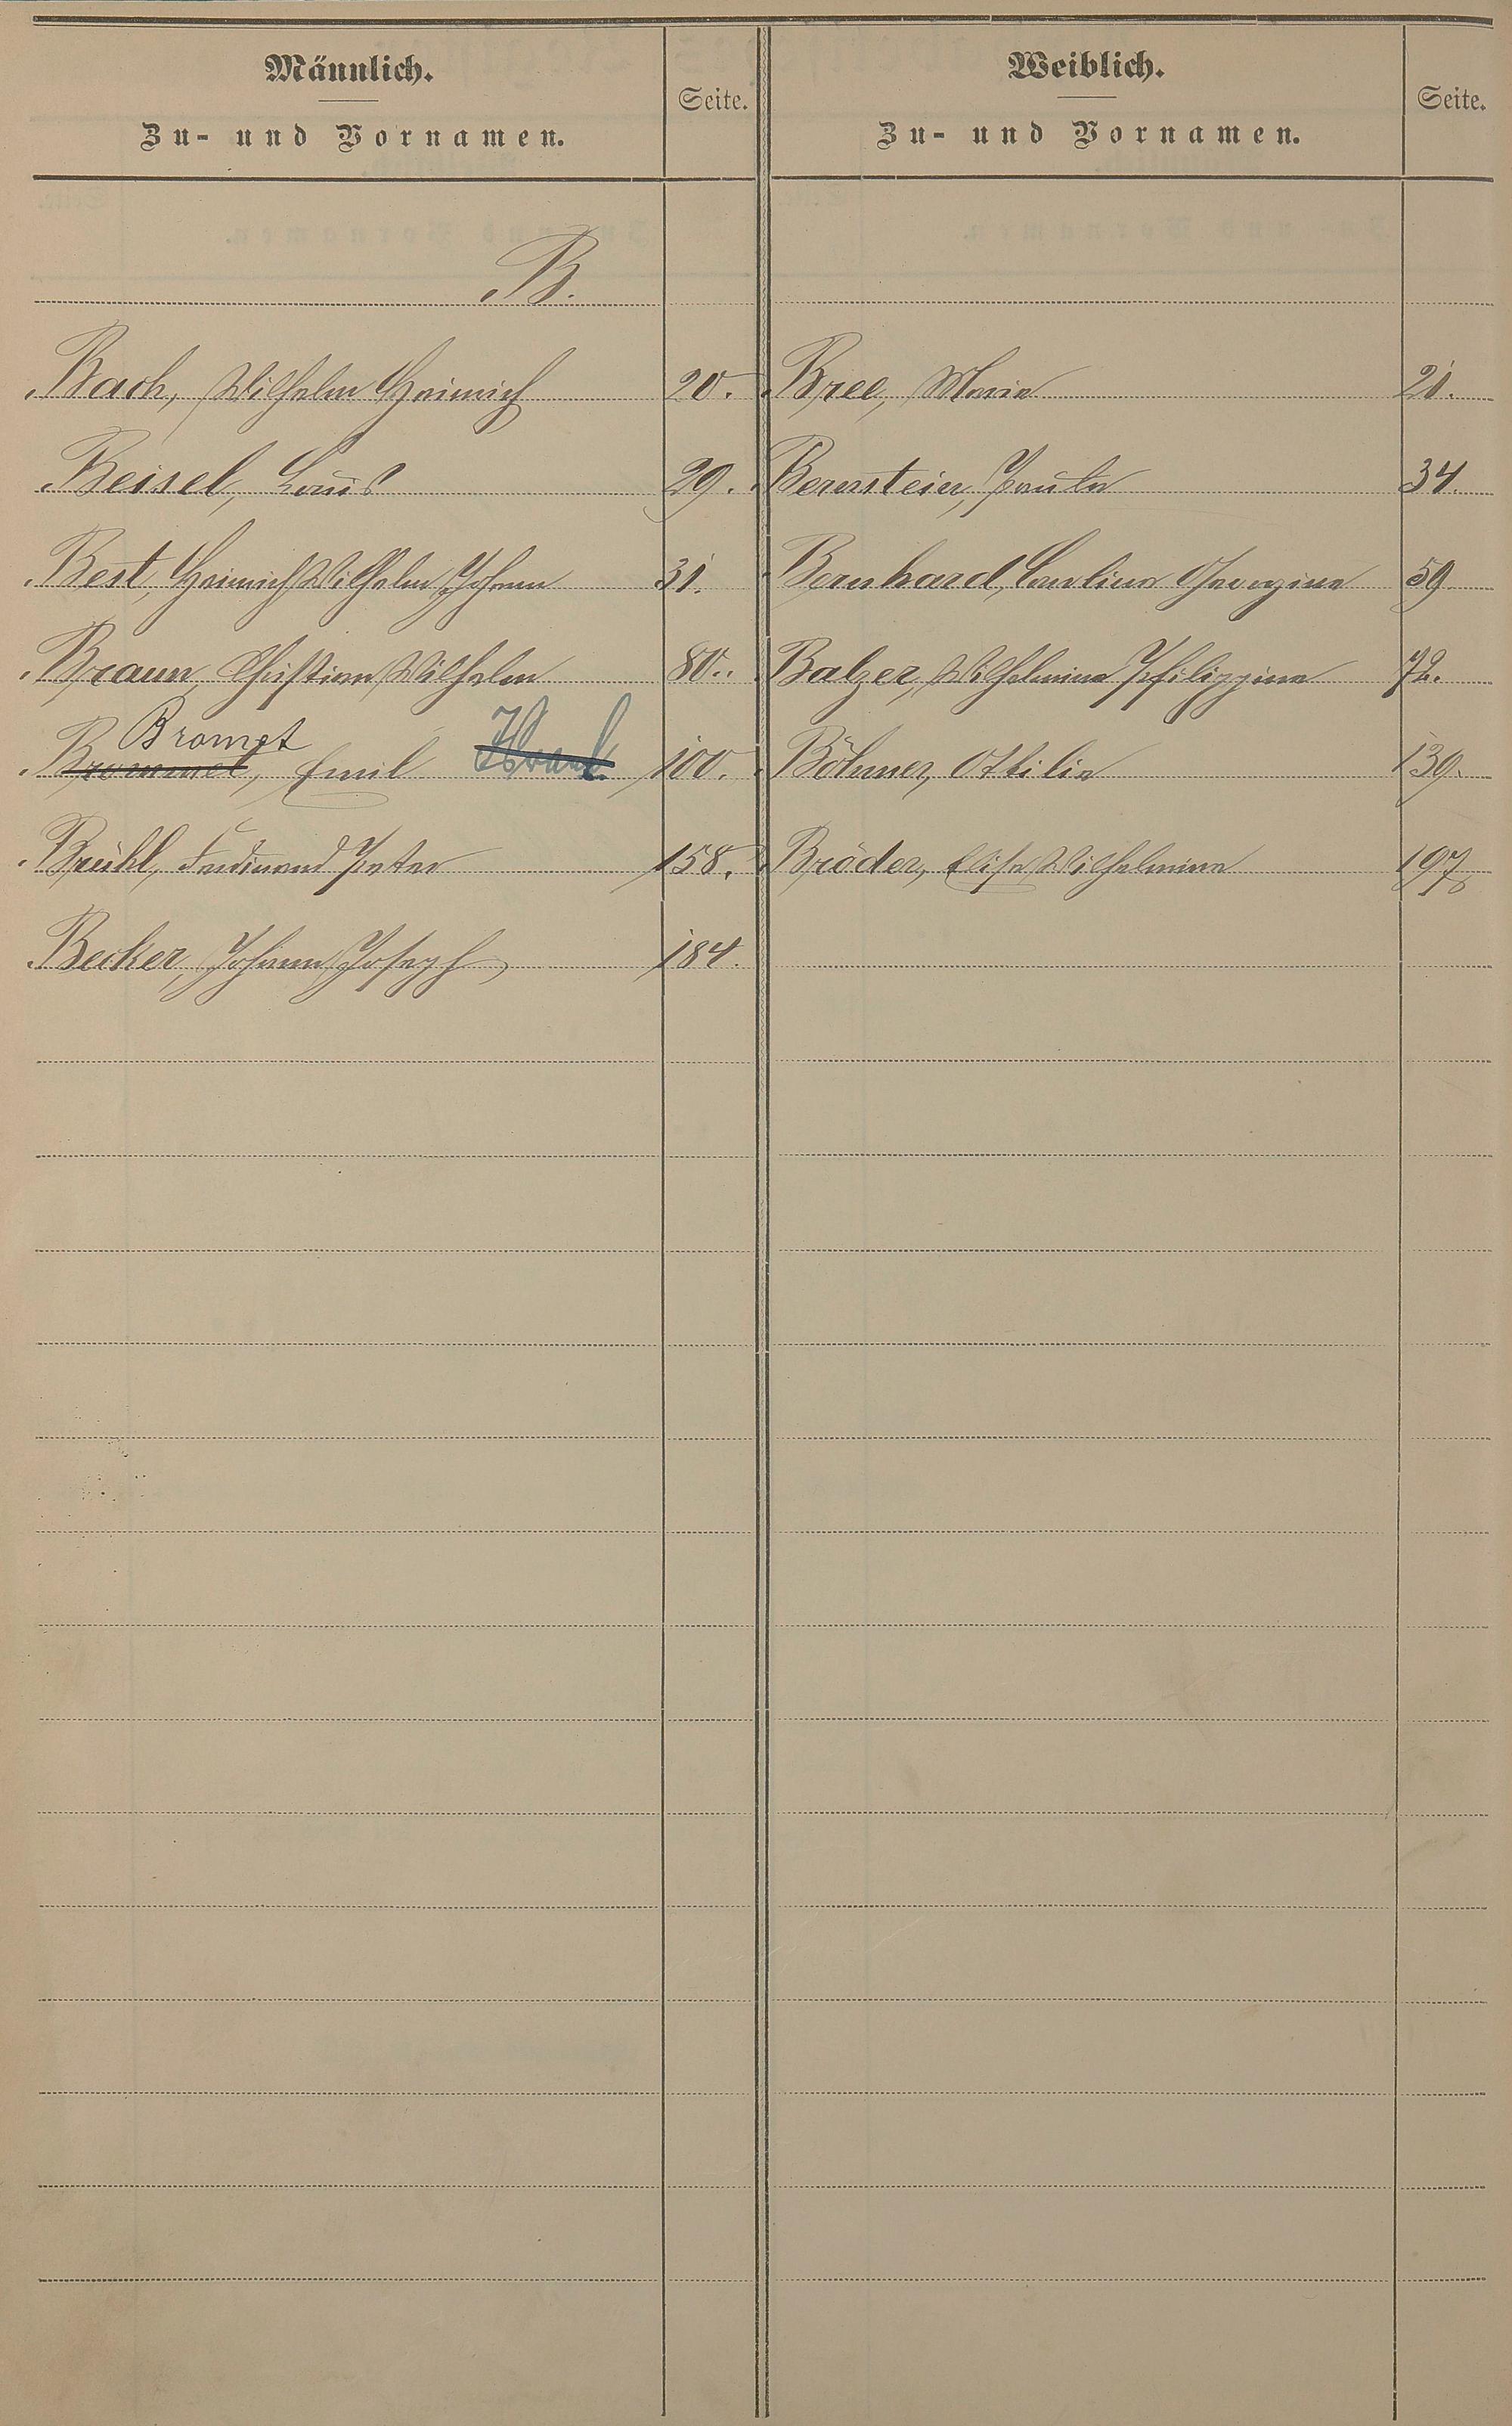 Männlich.
Zu- und Vornamen.
Seite.
Weiblich.
Zu- und Vornamen.
Seite.
B.
Bach, Wilhelm Heinrich 20. Bree, Marie 21.
Beisel, Louis 29. Bernstein, Paula 34.
Best, Heinrich Wilhelm Johann 31. Bernhard, Caroline Georgine 59
Braun, Christian Wilhelm 80. Balzer, Wilhelmine Philippine 72.
Bromet
Brommel, Emil Israel 100. Böhmer, Ottilie 139.
Brühl, Ferdinand Peter 158. Bröder, Elise Wilhelmine 197
Becker, Johann Joseph 184.